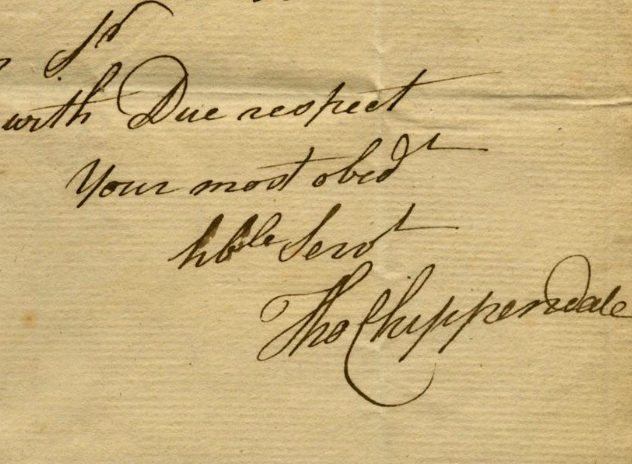 Sr
with Due respect
Your most obedt
hble Servt
Tho Chippendale